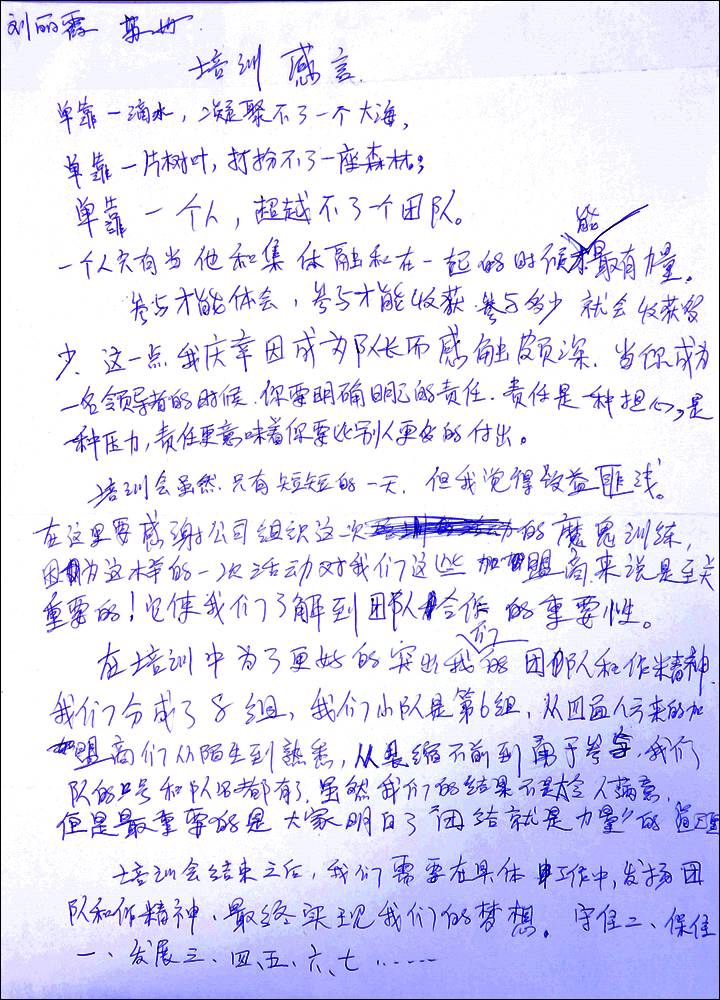 刘丽霞 苏州
培训感言
单靠一滴水，凝聚不了一个大海，
单靠一片树叶，打扮不了一座森林；
单靠一个人，超越不了一个团队。
能
一个人只有当他和集体融和在一起的时候才最有力量。
参与才能体会，参与才能收获，参与多少就会收获多
少。这一点我庆幸因成为队长而感触颇深。当你成为
一名领导者的时候，你要明确自己的责任。责任是一种担心，是
一种压力，责任更意味着你要比别人更多的付出。
培训会虽然只有短短的一天，但我觉得效益匪浅。
在这里要感谢公司组织这一次的魔鬼训练，
因为这样的一次活动对我们这些加盟商来说是至关
重要的！它使我们了解到团队合作的重要性。
们
在培训中为了更好的突出我的团队和作精神，
我们分成了8组，我们小队是第6组，从四面八方来的加
盟商们从陌生到熟悉，从畏缩不前到勇于参与，我们
队的口号和队呼都有了，虽然我们的结果不是令人满意，
但是最重要的是大家明白了“团结就是力量”的
培训会结束之后，我们需要在具体工作中，发扬团
队和作精神，最终实现我们的梦想。守住二、保住
一、发展三、四、五、六、七……